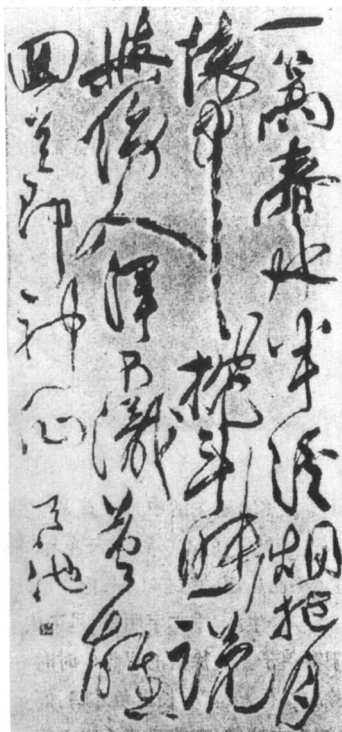 一篙春水半溪烟抱月
懷中枕斗眠説
與傍人渾不識英雄
囬首即神仙 天池